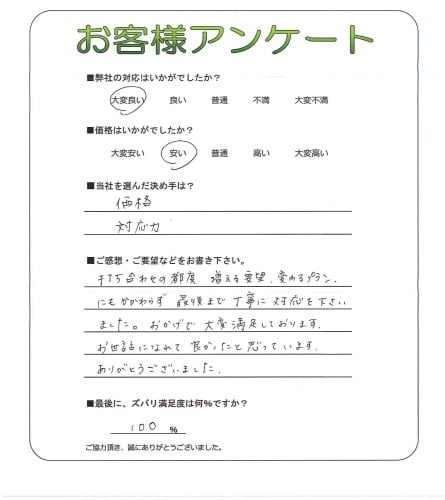 お客様アンケート
■弊社の対応はいかがでしたか？
大変良い 良い 普通 不満 大変不満
■価格はいかがでしたか？
大変安い 安い 普通 高い 大変高い
■当社を選んだ決め手は？
価格
対応力
■ご感想・ご要望などをお書き下さい。
打ち合わせの都度 増える要望、変わるプラン、
にもかかわらず 最後まで丁寧に対応を下さい
ました。おかげで大変満足しております。
お世話になれて良かったと思っています。
ありがとうございました。
■最後に、ズバリ満足度は何%ですか？
100 %
ご協力頂き、誠にありがとうございました。